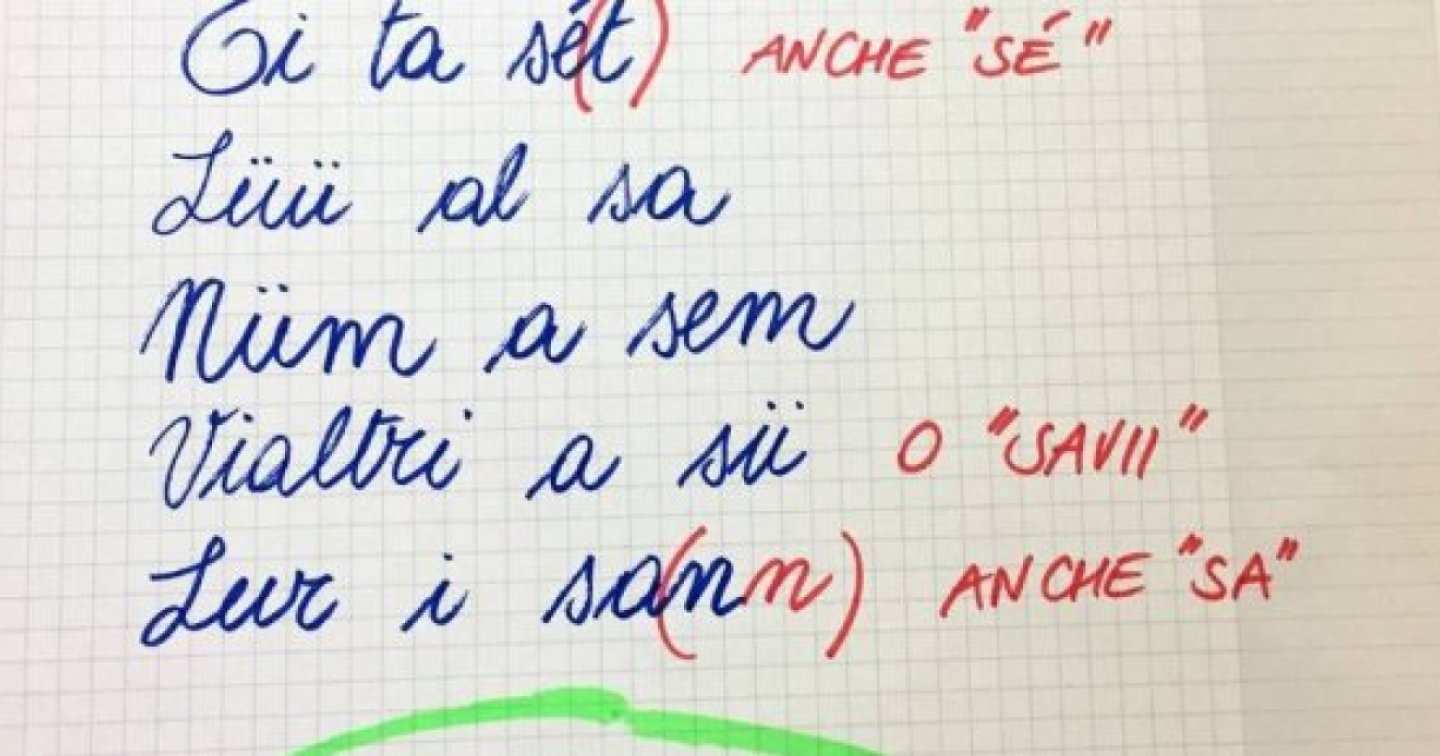 Ti ta sét) ANCHE "SÉ"
Lüü al sa
Nüm a sem
Vialtri a sii O "SAVII"
Lur i sa(nn) ANCHE "SA"